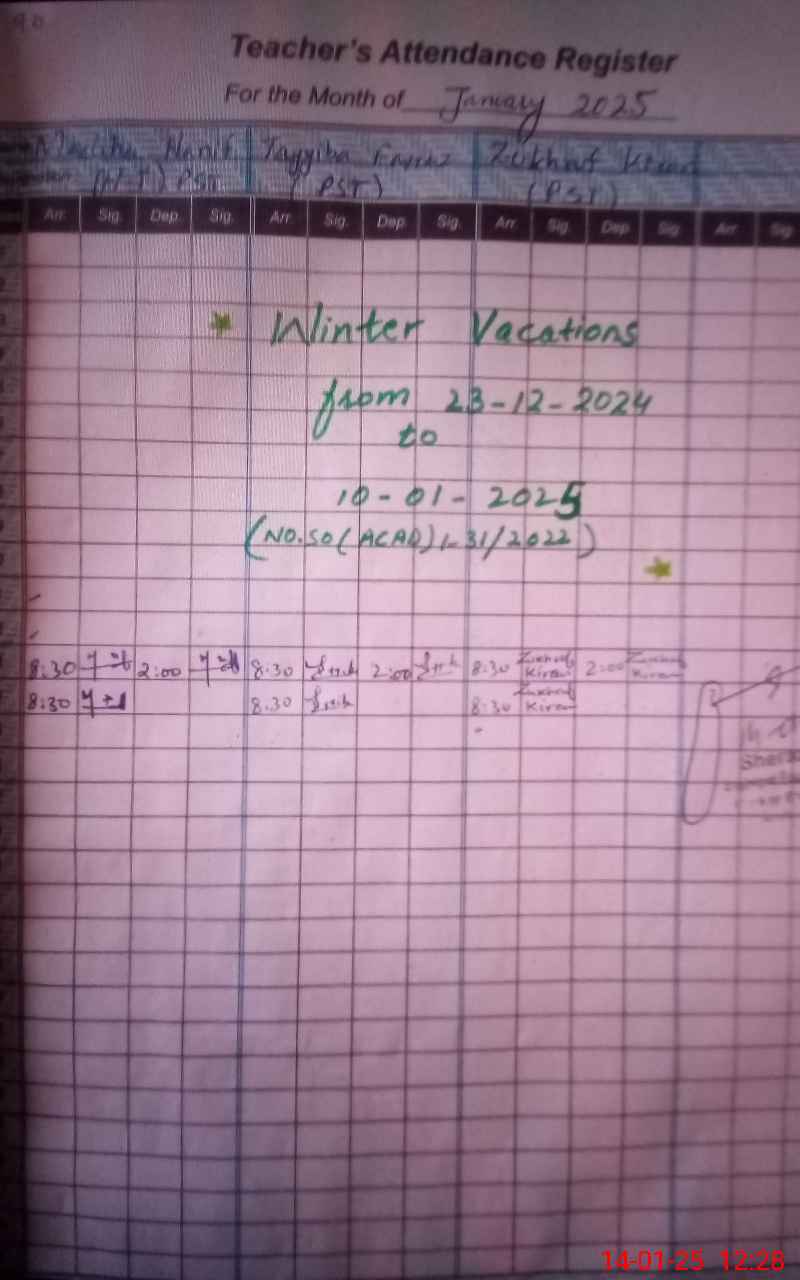 Teacher's Attendance Register
For the Month of January 2025
Hanif Tayyiba Zukhaf Kiran
(PST) (PST)
Arr. Sig. Dep. Sig. Arr. Sig. Dep. Sig. Arr. Sig. Dep. Sig. Arr. Sig
* Winter Vacations
from 23-12-2024
to
10-01-2025
(NO.SO(ACAD)1-31/2022)
*
8:30 2:00 8:30 2:00 8:30 Zukhaf Kiran 2:00 Zukhaf Kiran
8:30 8:30 8:30 Zukhaf Kiran
14-01-25 12:28